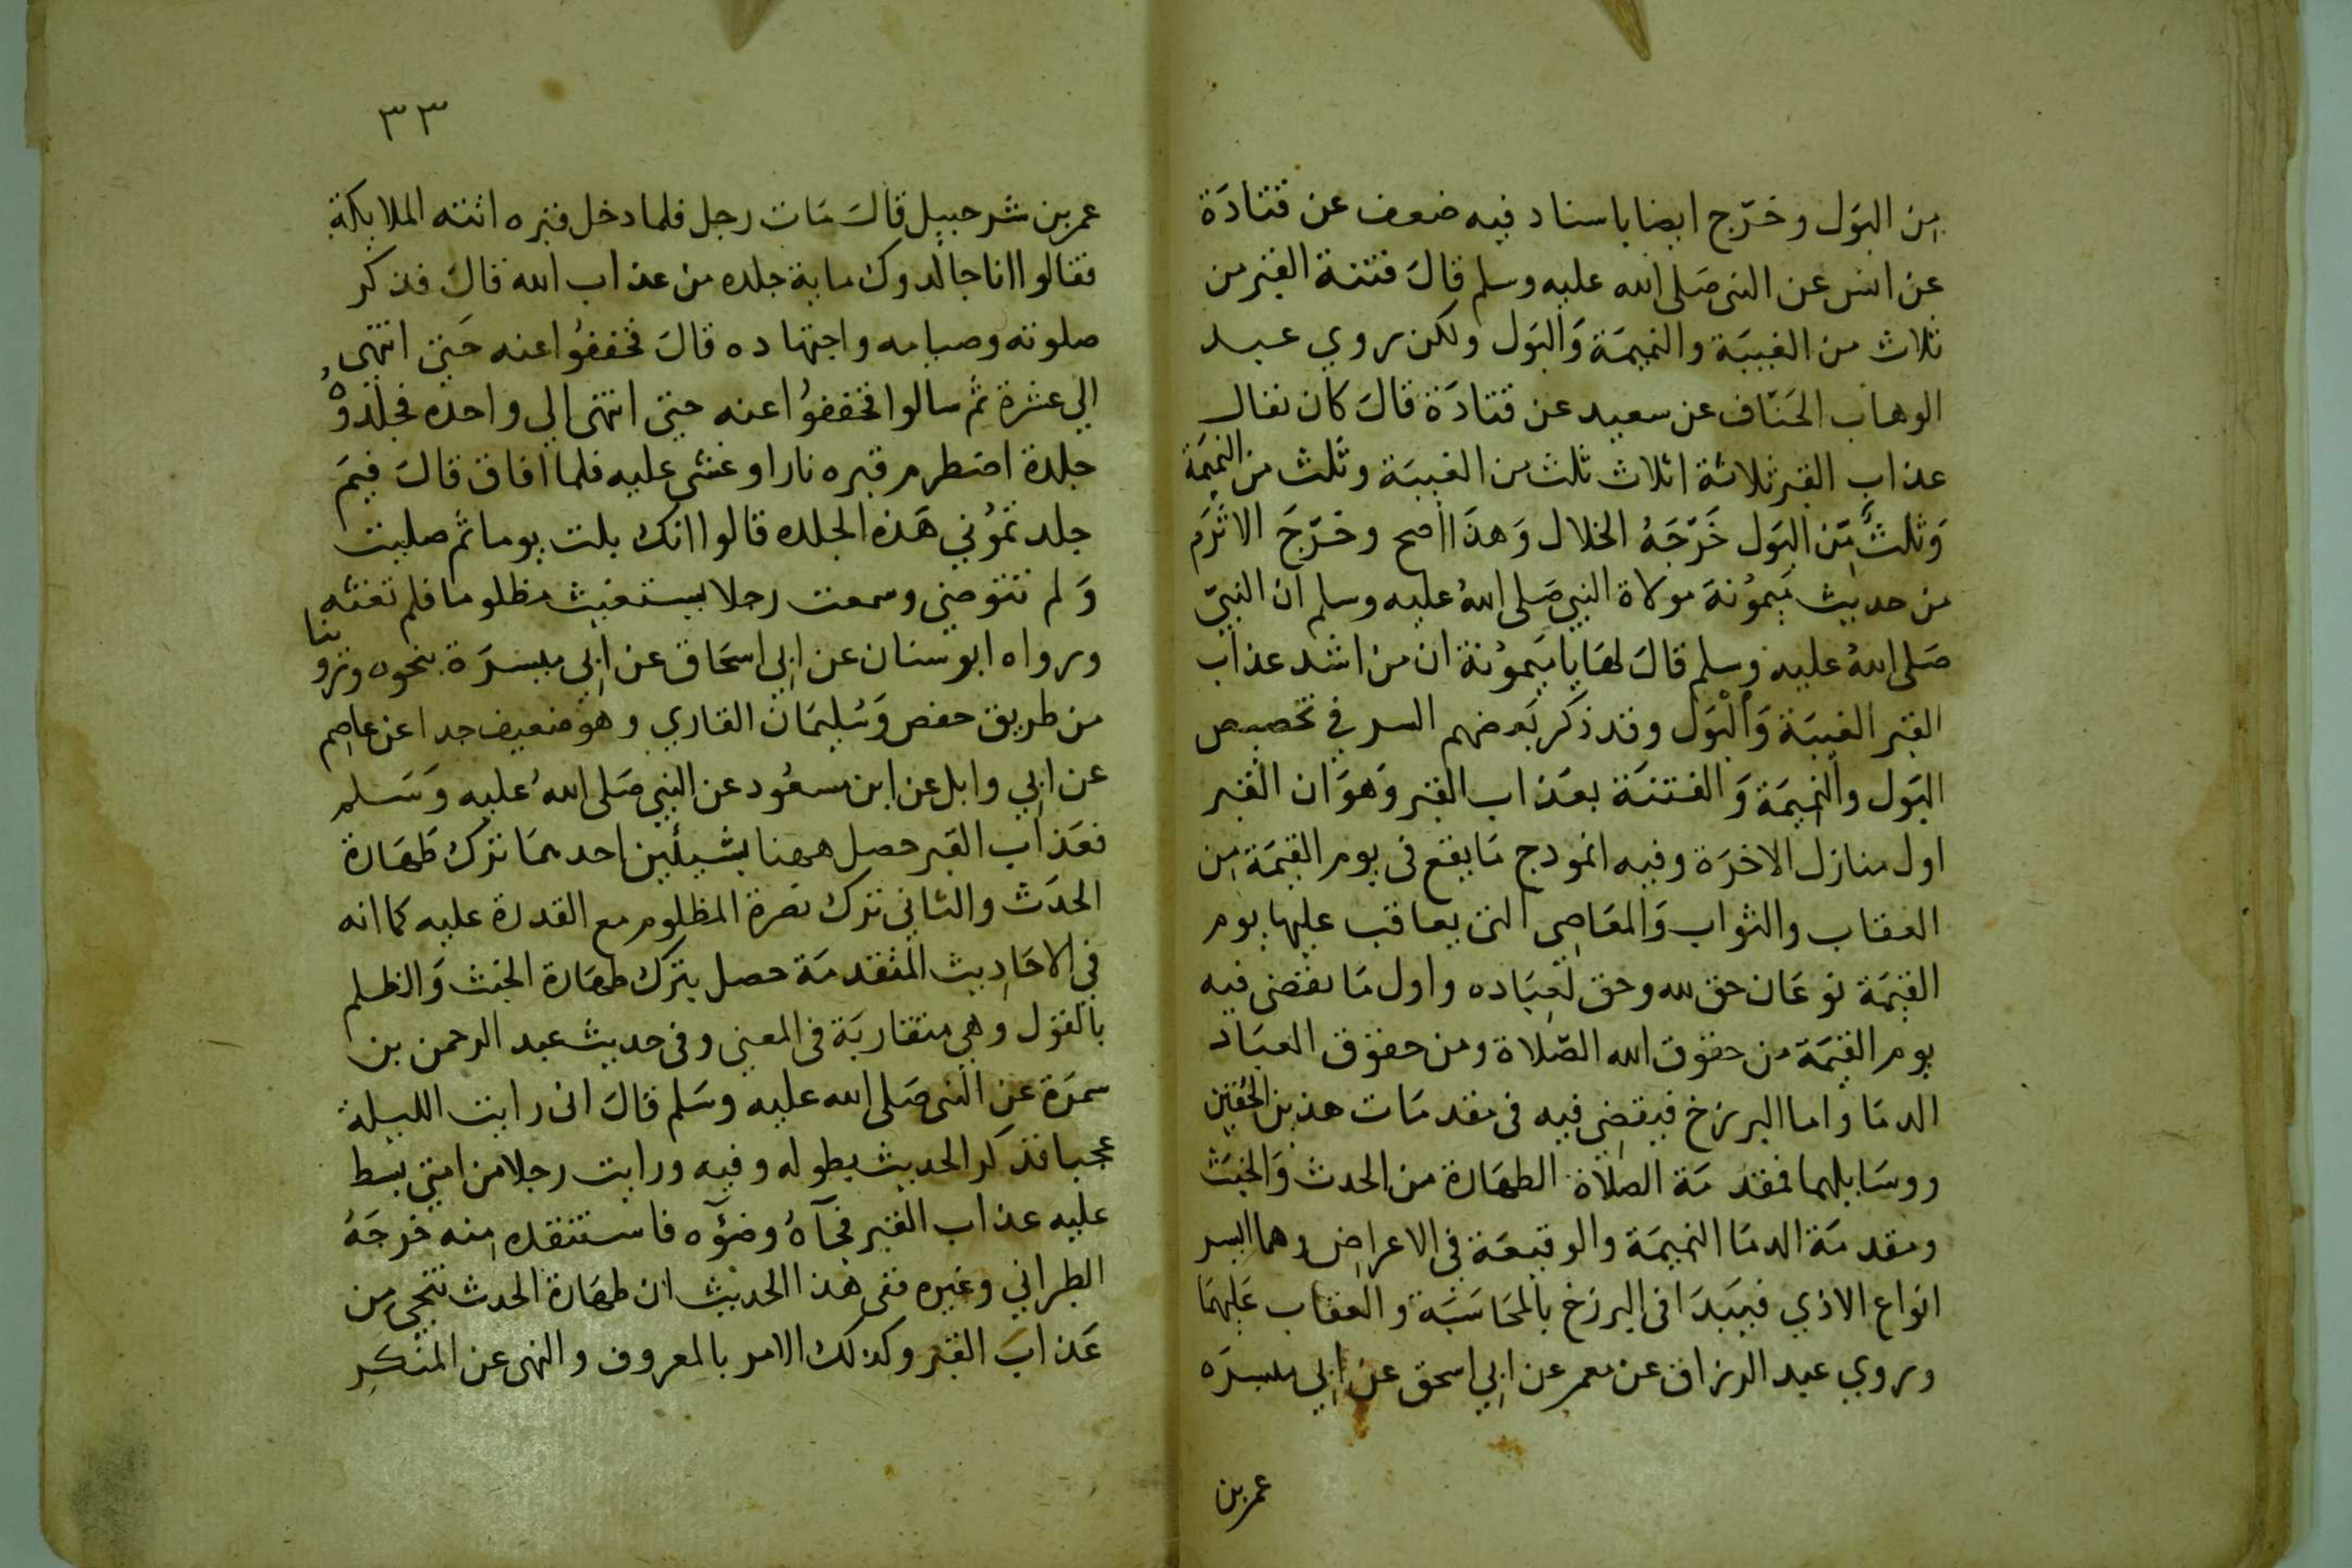 من البَول وخرّج ايضا باسناد فيه ضعف عن قتادَة
عن انس عن النبي صَلى الله عليه وسلم قالَ فتنة القبر من
ثلاث من الغيبَة والنميمَة وَالبَول ولكن روي عبد
الوهاب الخَفّاف عن سعيد عن قتادَة قالَ كان يقال
عذاب القبر ثلاثة اثلاث ثلث من الغيبَة وثلث من النميمَة
وَثلثٌ مّن البَول خَرّجَهُ الخلال وَهذَا اصح وخرّجَ الاثرَم
من حديث مَيمُونَة مولاة النبي صَلى اللهُ عليه وسلم ان النبيّ
صَلى اللهُ عليه وسلم قالَ لهَا يا ميَمُونة ان من اشد عذاب
القبر الغيبَة وَالْبَول وقد ذكر بَعضهم السر في تخصيص
البَول والنميمَة وَالغتنَة بعَذاب القبر وَهوَ ان القبر
اول منازل الاخرَة وفيه انموذج مَا يقع فى يوم القيمَة مِن
العقاب والثواب وَالمعَاصِي التى يعاقب عليها يوم
القيمَة نوعَان حق لله وحق لعِبَاده واول مَا يقضى فيه
يوم القيمَة من حقوق الله الصّلاة ومن حقوق العبَاد
الدمَا واما البرزخ فيقضِي فيه فى مقدمَات هذين الحُقين
ووسَايلهما فمقدمَة الصلاة الطهَارة من الحدث وَالخبَث
ومقدمَة الدمَا النميمَة والوقيعَة في الاعراض وهما ايسر
انواع الاذي فيَبدَا فى البرزخ بالمحَاسَبَة والعقاب عَليهمَا
وروي عبد الرزاق عن معمر عن ابِي اسحق عن ابِي ميسرَه
عمر بن
٣٣
عمر بن شرحبيل قالَ مَات رجل فلما دخل قبره اتته الملايكة
فقالوا انا جالدوك ماية جلده من عذاب الله قالَ فذكر
صلوته وصيامه واجتهاده قالَ فخففوُا عنه حَتى انتهى
الي عشرة ثم سالوا فخففوُا عنه حتى انتهى الي واحده فجلدوْهُ
جلدة اضطرم قبره نارا وغشي عليه فلما افاق قالَ فيمَ
جلدتموُني هَذه الجلده قالوا انك بلت يوما ثم صليت
وَلم تتوضي وسمعت رجلا يستغيث مظلوما فلم تغثه
ورواه ابو سنان عن ابِي اسحَاق عن ابِي ميسرَة بنحوه وروينا
من طريق حفص وَسُليمَان القاري وهوَ ضعيف جدا عن عاصِم
عن ابِي وايل عن ابن مسعُود عن النبي صَلى اللهُ عليه وَسَلم
فعَذاب القبر حصل ههنا بشيئين احدهمَا ترك طَهَارة
الحدَث والثاني ترك نصرة المظلوم مع القدرة عليه كما انه
في الاحَادِيث المتقدمَة حصل بترك طهَارة الخبث وَالظلم
بالقوَل وهي متقاربَة فى المعنى وفى حديث عبد الرحمن بن
سمرَة عن النبى صَلى الله عليه وسَلم قالَ انى رايت الليلة
عجبا فذكر الحديث بطوله وفيه ورايت رجلا من امتي بسط
عليه عذاب القبر فجآهُ وضوُءه فاستنقده مِنه خرجَهُ
الطبراني وغيره ففى هَذا الحديث ان طهَارة الحدث تنجى من
عَذابَ القبر وكذلك الامر بالمعروف والنهى عن المنكر